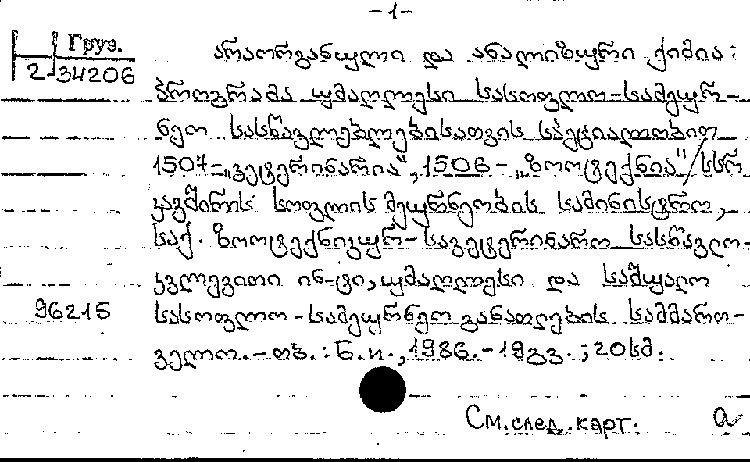 -1-
Груз.
2-34206
არაორგანული და ანალიზური ქიმია:
პროგრამა უმაღლესი სასოფლო-სამეურ-
ნეო სასწავლებლებისათვის სპეციალობით
1507-„ვეტერინარია“, 1506-„ზოოტექნია“/ სსრ
კავშირის სოფლის მეურნეობის სამინისტრო,
საქ. ზოოტექნიკურ-სავეტერინარო სასწავლო-
კვლევითი ინ-ტი, უმაღლესი და საშუალო
96215
სასოფლო-სამეურნეო განათლების სამმართ-
ველო.-თბ.: Б.и., 1986.-19გვ.; 20სმ.
См. след. карт.
a